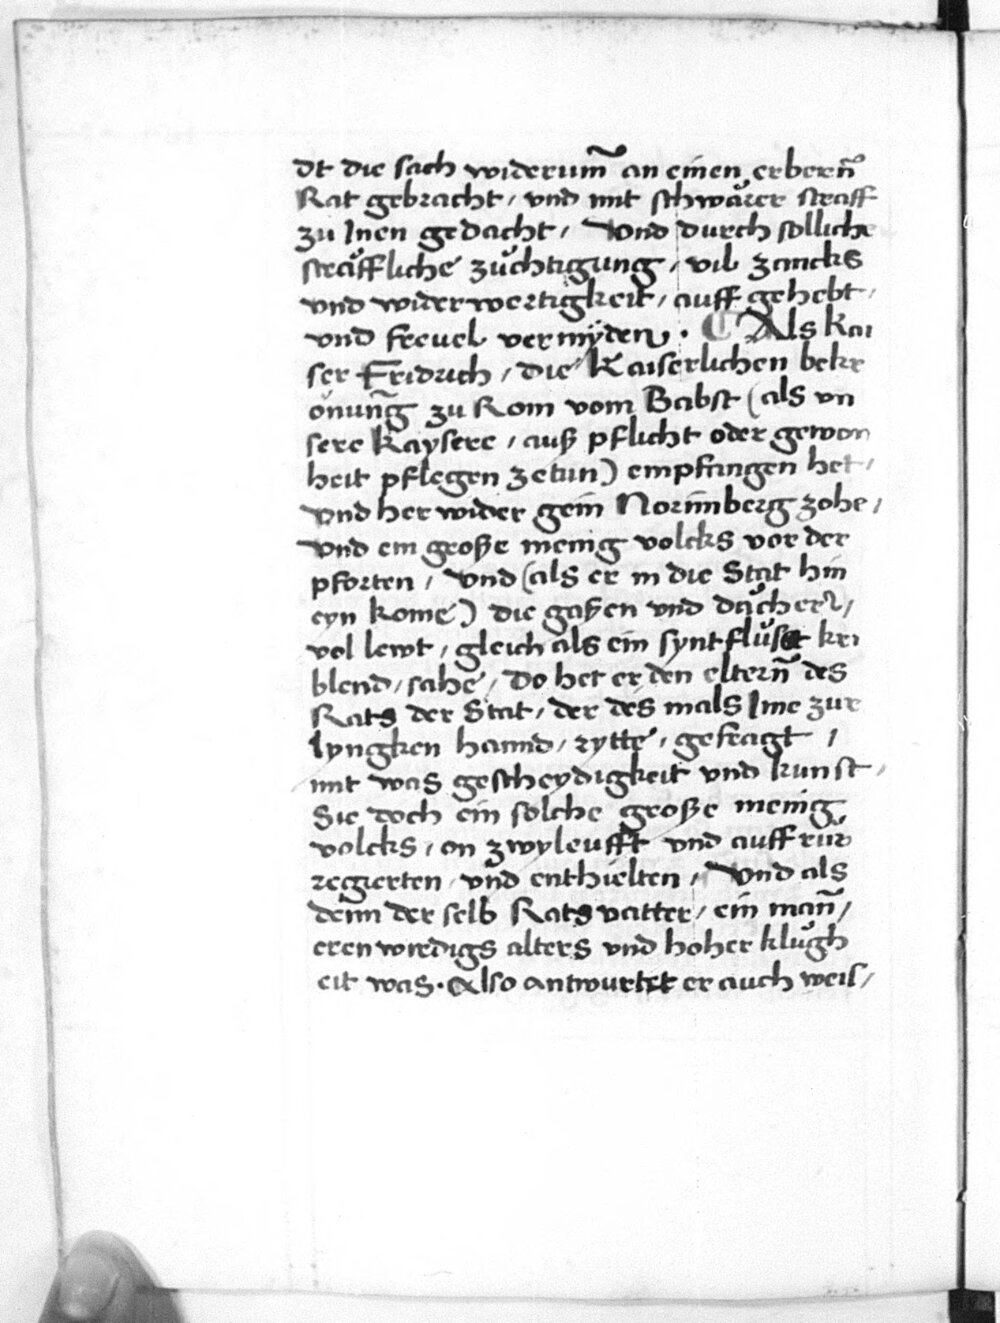 dt die sach widerum̃ an einen erberñ
Rat gebracht / vnd mit schwårer straff
zu Inen gedacht / Vnd durch solliche
stråffliche zůchtigung / vil zancks
vnd widerwertigkeit / auff gehebt /
vnd freuel vermÿden · ¶ Als Kai
ser Fridrich / die Kaiserlichen bekr
onung̃ zu Rom vom Babst (als vn
sere Kaysere / auß pflicht oder gewon
heit pflegen zetun) empfangen het /
vnd her wider gein Norimberg zohe /
vnd ein große menig volcks vor der
pforten / vnd (als er in die Stat hin
eyn kome) die gaßen vnd dåcherr /
vol lewt / gleich als ein syntflůst kri
blend / sahe / Do het er den elterñ des
Rats der Stat / der des mals Ime zur
lyngken hannd / rytte / gefragt /
mit was gescheydigkeit vnd kunst /
Sie doch ein solche große menig
volcks / on zwyleufft vnd auffrůr
regierten vnd enthielten / Vnd als
denn der selb Rats vatter / ein mañ /
erenwirdigs alters vnd hoher klůgh
eit was · Also antwurtet er auch weis /